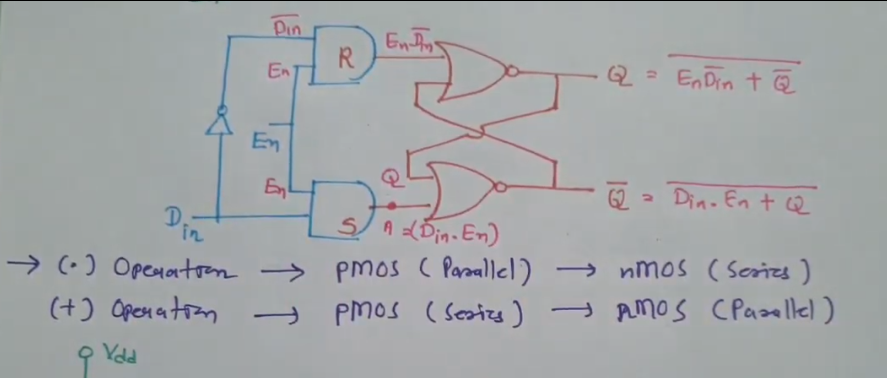 D̅i̅n̅
En
R
En·D̅i̅n̅
Q = \overline{En\overline{Din} + \overline{Q}}
En
En
Q
D in
S
A = (Din. En)
Q̅ = \overline{Din. En + Q}
→ (.) Operation → pMOS (Parallel) → nMOS (Series)
(+) Operation → pMOS (Series) → nMOS (Parallel)
Vdd